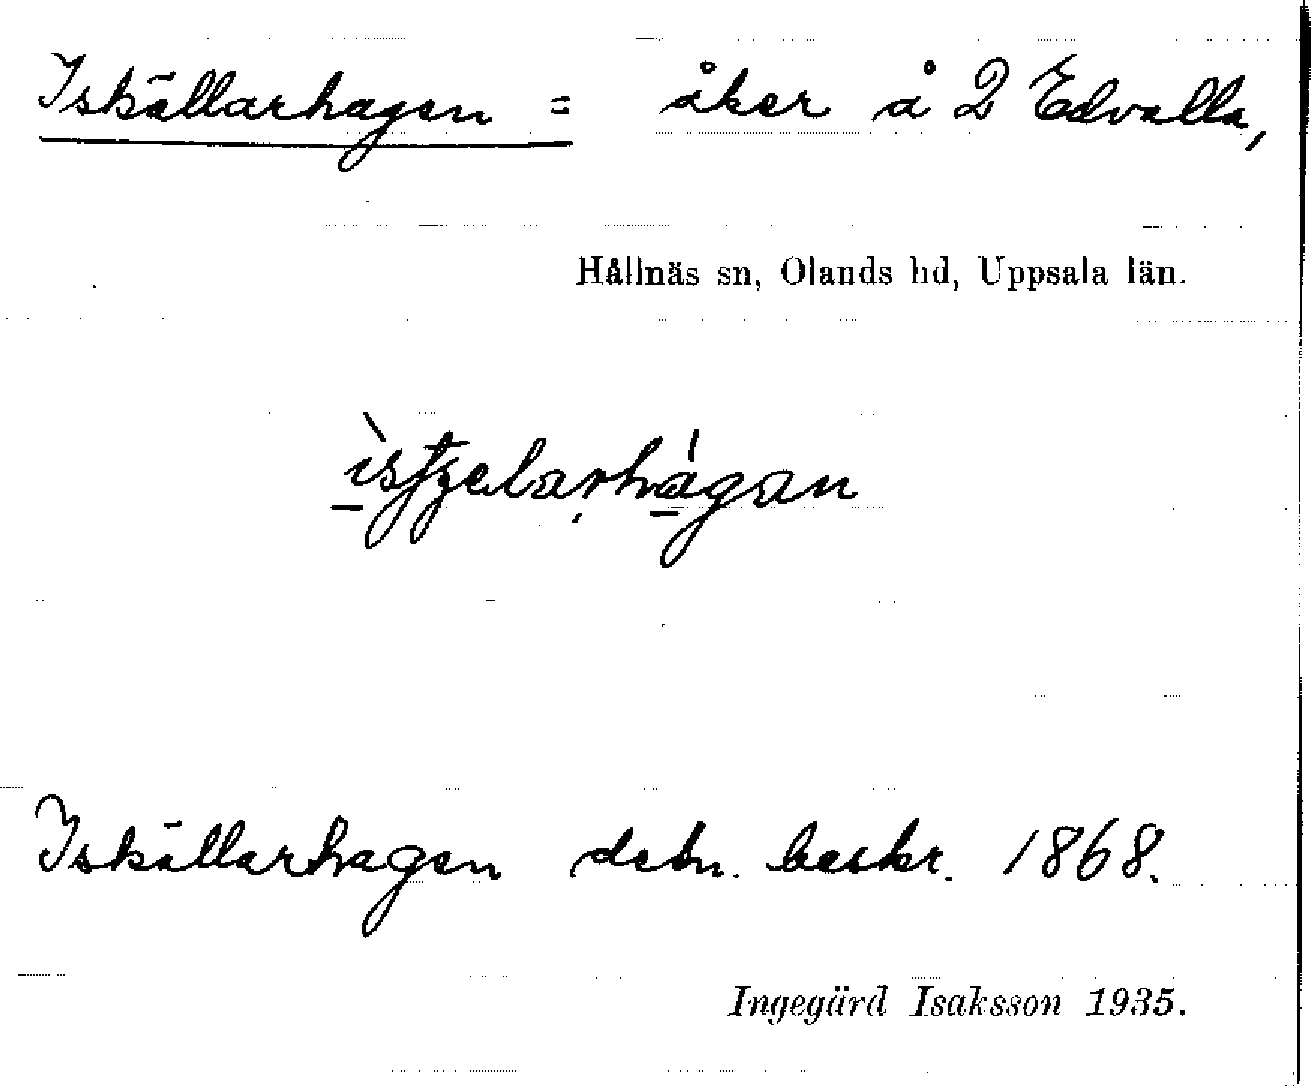 Iskällarhagen = åker å 2 Edvalla,
Hållnäs sn, Olands hd, Uppsala län.
Iskällarhagen detn. beskr. 1868.
Ingegärd Isaksson 1935.